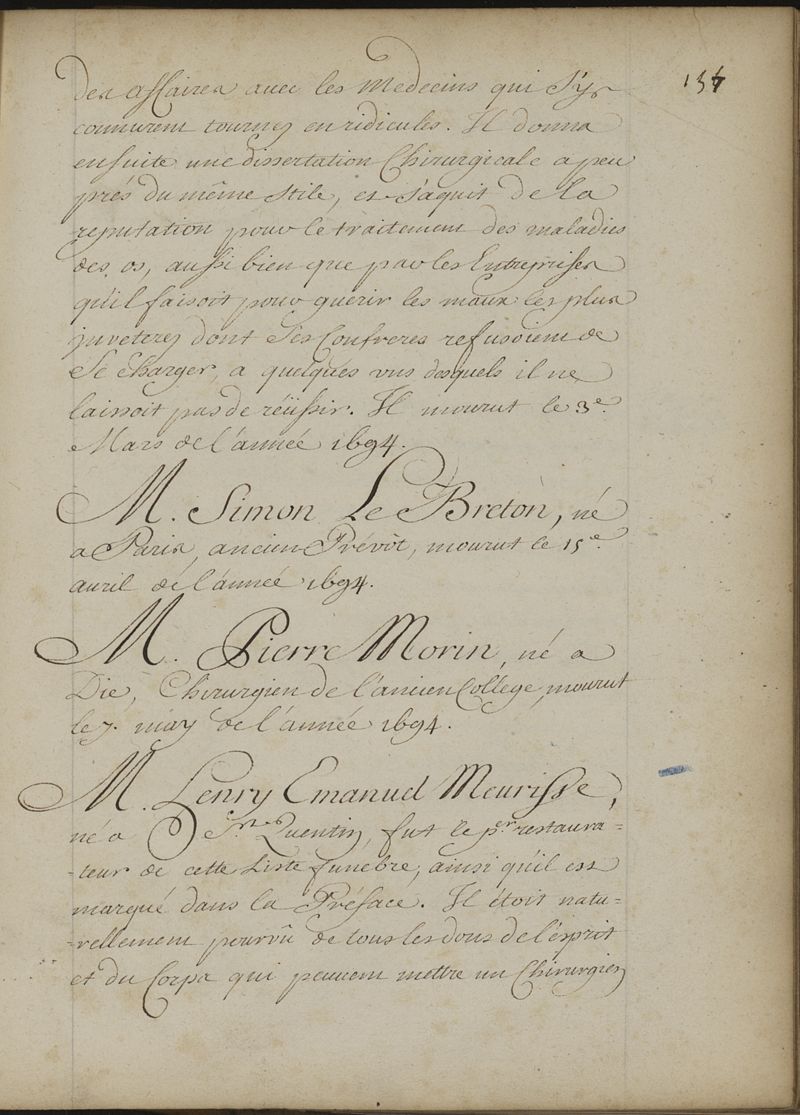 137
des affaires avec les Medecins qui s'y
connurent tournez en ridicules. Il donna
ensuite une dissertation Chirurgicale a peu
prés du même stile, et s'aquit de la
reputation pour le traitement des maladies
des os, aussi bien que par les Entreprises
qu'il faisoit pour guerir les maux les plus
inveterez dont ses Confreres refusoient de
se charger, a quelques uns desquels il ne
laissoit pas de réüssir. Il mourut le 3e.
Mars de l'année 1694.
M. Simon Le Breton, né
a Paris, ancien Prévôt, mourut le 15e.
avril de l'année 1694.
M. Pierre Morin, né a
Die, Chirurgien de l'ancien College, mourut
le 7. may de l'année 1694.
M. Henry Emanuel Meurisse,
né a St. Quentin, fut le per. restaura=
=teur de cette Liste funebre, ainsi qu'il est
marqué dans la Préface. Il étoit natu=
=rellement pourvû de tous les dons de l'ésprit
et du Corps qui peuvent mettre un Chirurgien